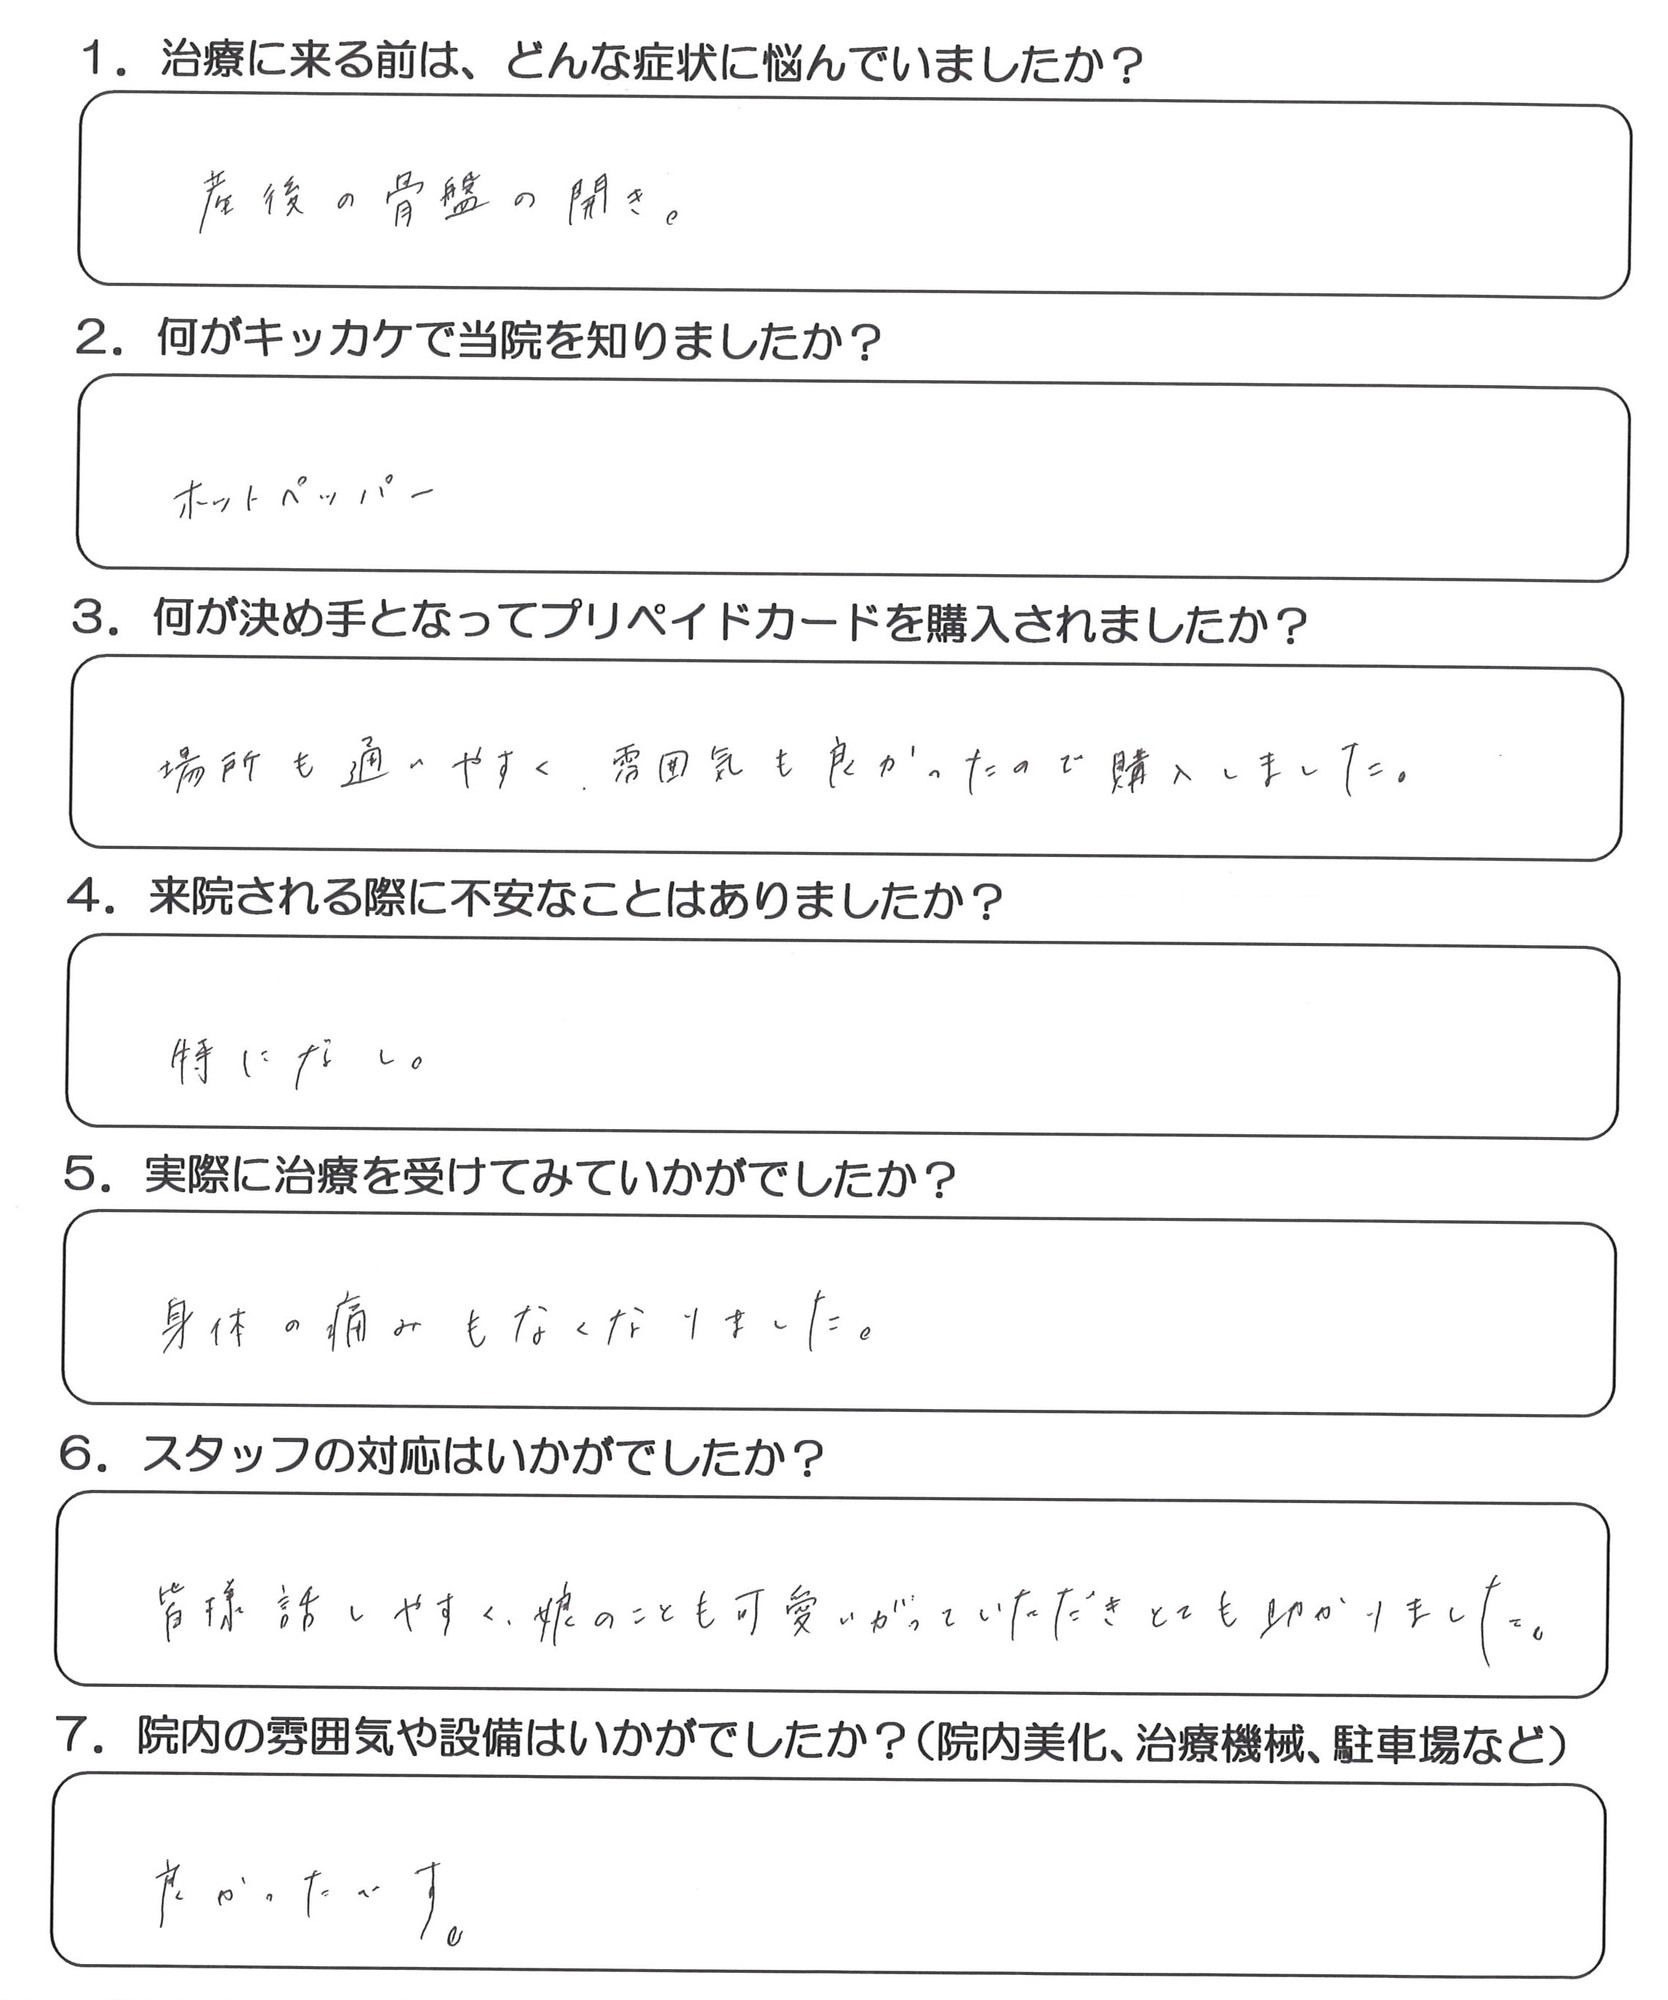 1. 治療に来る前は、どんな症状に悩んでいましたか？
産後の骨盤の開き。
2. 何がキッカケで当院を知りましたか？
ホットペッパー
3. 何が決め手となってプリペイドカードを購入されましたか？
場所も通いやすく、雰囲気も良かったので購入しました。
4. 来院される際に不安なことはありましたか？
特になし。
5. 実際に治療を受けてみていかがでしたか？
身体の痛みもなくなりました。
6. スタッフの対応はいかがでしたか？
皆様話しやすく、娘のことも可愛いがっていただきとても助かりました。
7. 院内の雰囲気や設備はいかがでしたか？（院内美化、治療機械、駐車場など）
良かったです。